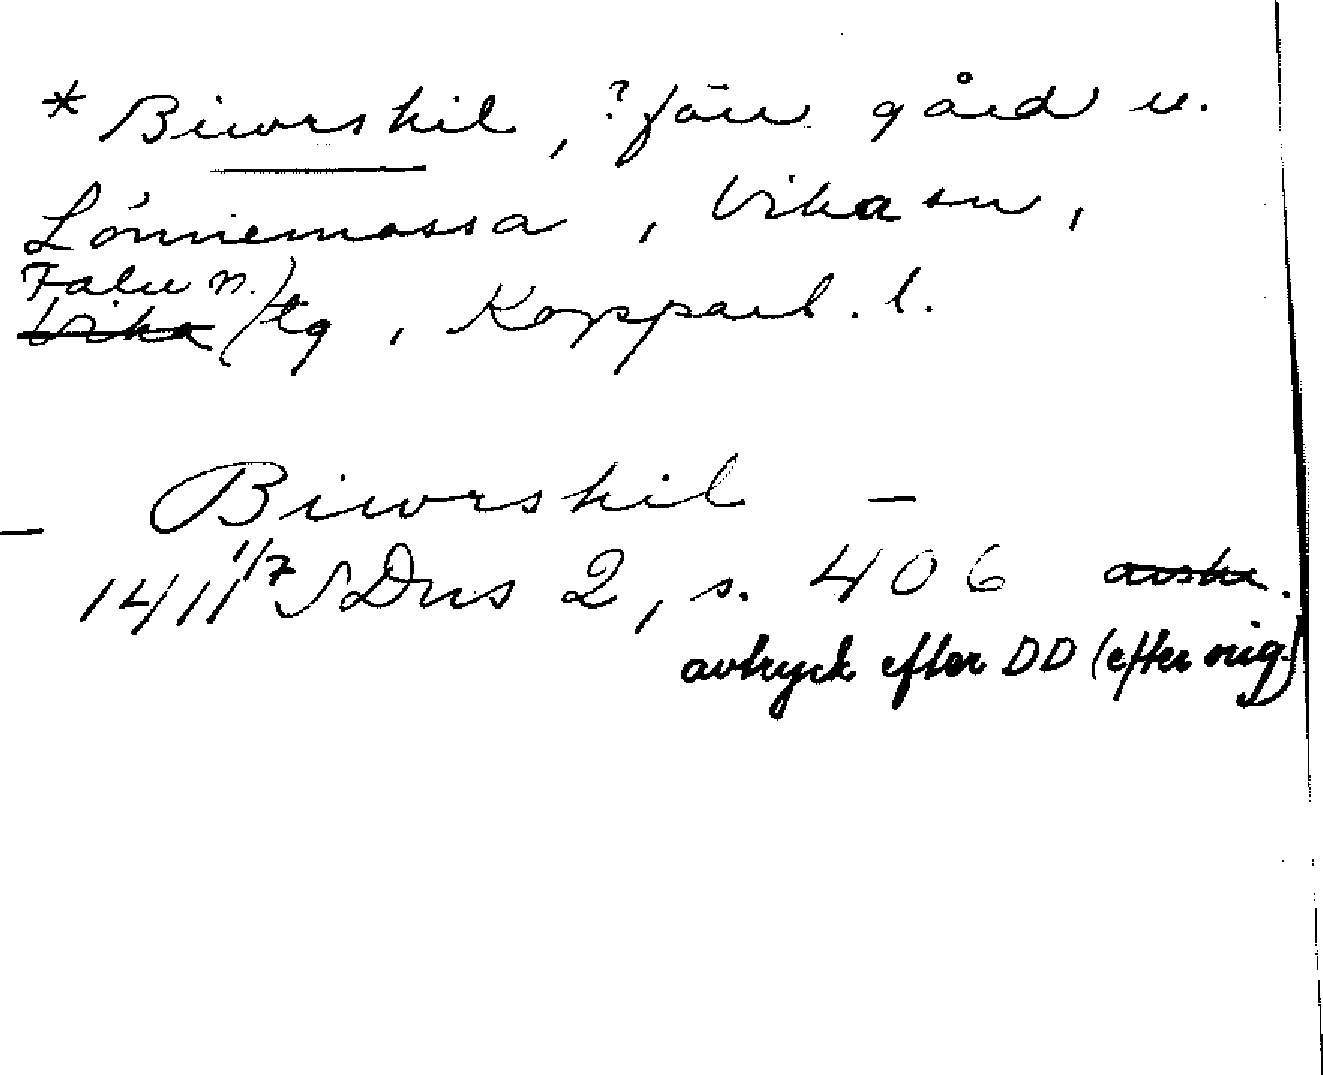 * Biworskil, ? förr gård u.
Lönnemossa, Vika sn,
Falu n.
~~Vika~~ / tg, Kopparb. l.
– Biworskil –
1411 1/7 SDns 2, s. 406 ~~avskr~~.
avtryck efter DD (efter orig.)